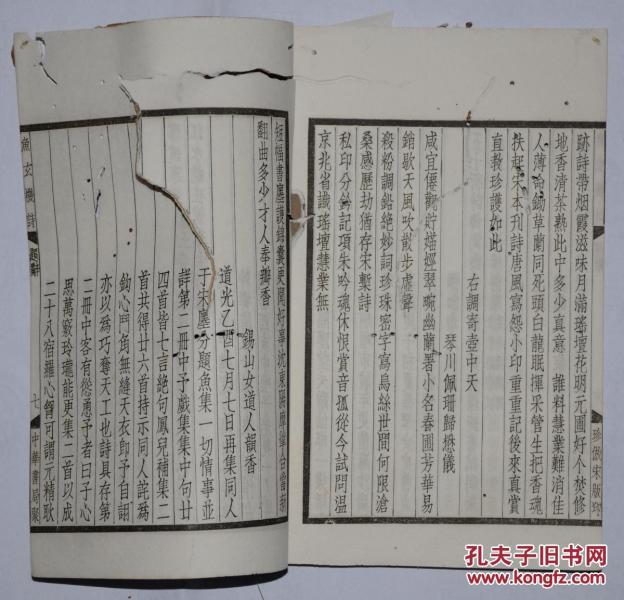 跡詩帶烟霞滋味月滿瑤壇花明元圃好个焚修
地香清茶熟此中多少真意　誰料慧業難消佳
人薄命鋤草蘭同死頭白龍眠揮采管生把香魂
扶起宋本刊詩唐風寫怨小印重重記後來真賞
直教珍護如此
右調寄壺中天
琴川佩珊歸懋儀
咸宜僊觀貯媌娙翠畹幽蘭署小名春圃芳華易
銷歇天風吹散步虛聲
殺粉調鉛絶妙詞珍珠密字寫烏絲世間何限滄
桑感歷劫猶存宋槧詩
私印分鈐記項朱吟魂休恨賞音孤從今試問溫
京兆省識瑤壇慧業無
珍倣宋版印
短幅書塵護錦囊更聞好事沈
翻曲多少才人奉瓣香
錫山女道人韻香
道光乙酉七月七日再集同人
于宋塵分題魚集一切情事並
詳第二冊中予戲集集中句廿
四首皆七言絶句鳳兒稱集二
首共得廿六首持示同人詫爲
鉤心鬥角無縫天衣卽予自詡
亦以爲巧奪天工也詩具存第
二冊中客有從恿予者曰子心
思萬竅玲瓏能更集二首以成
二十八宿羅心胷可謂元精耿
魚玄機詩
題辭
七
中華書局聚
孔夫子旧书网
www.kongfz.com